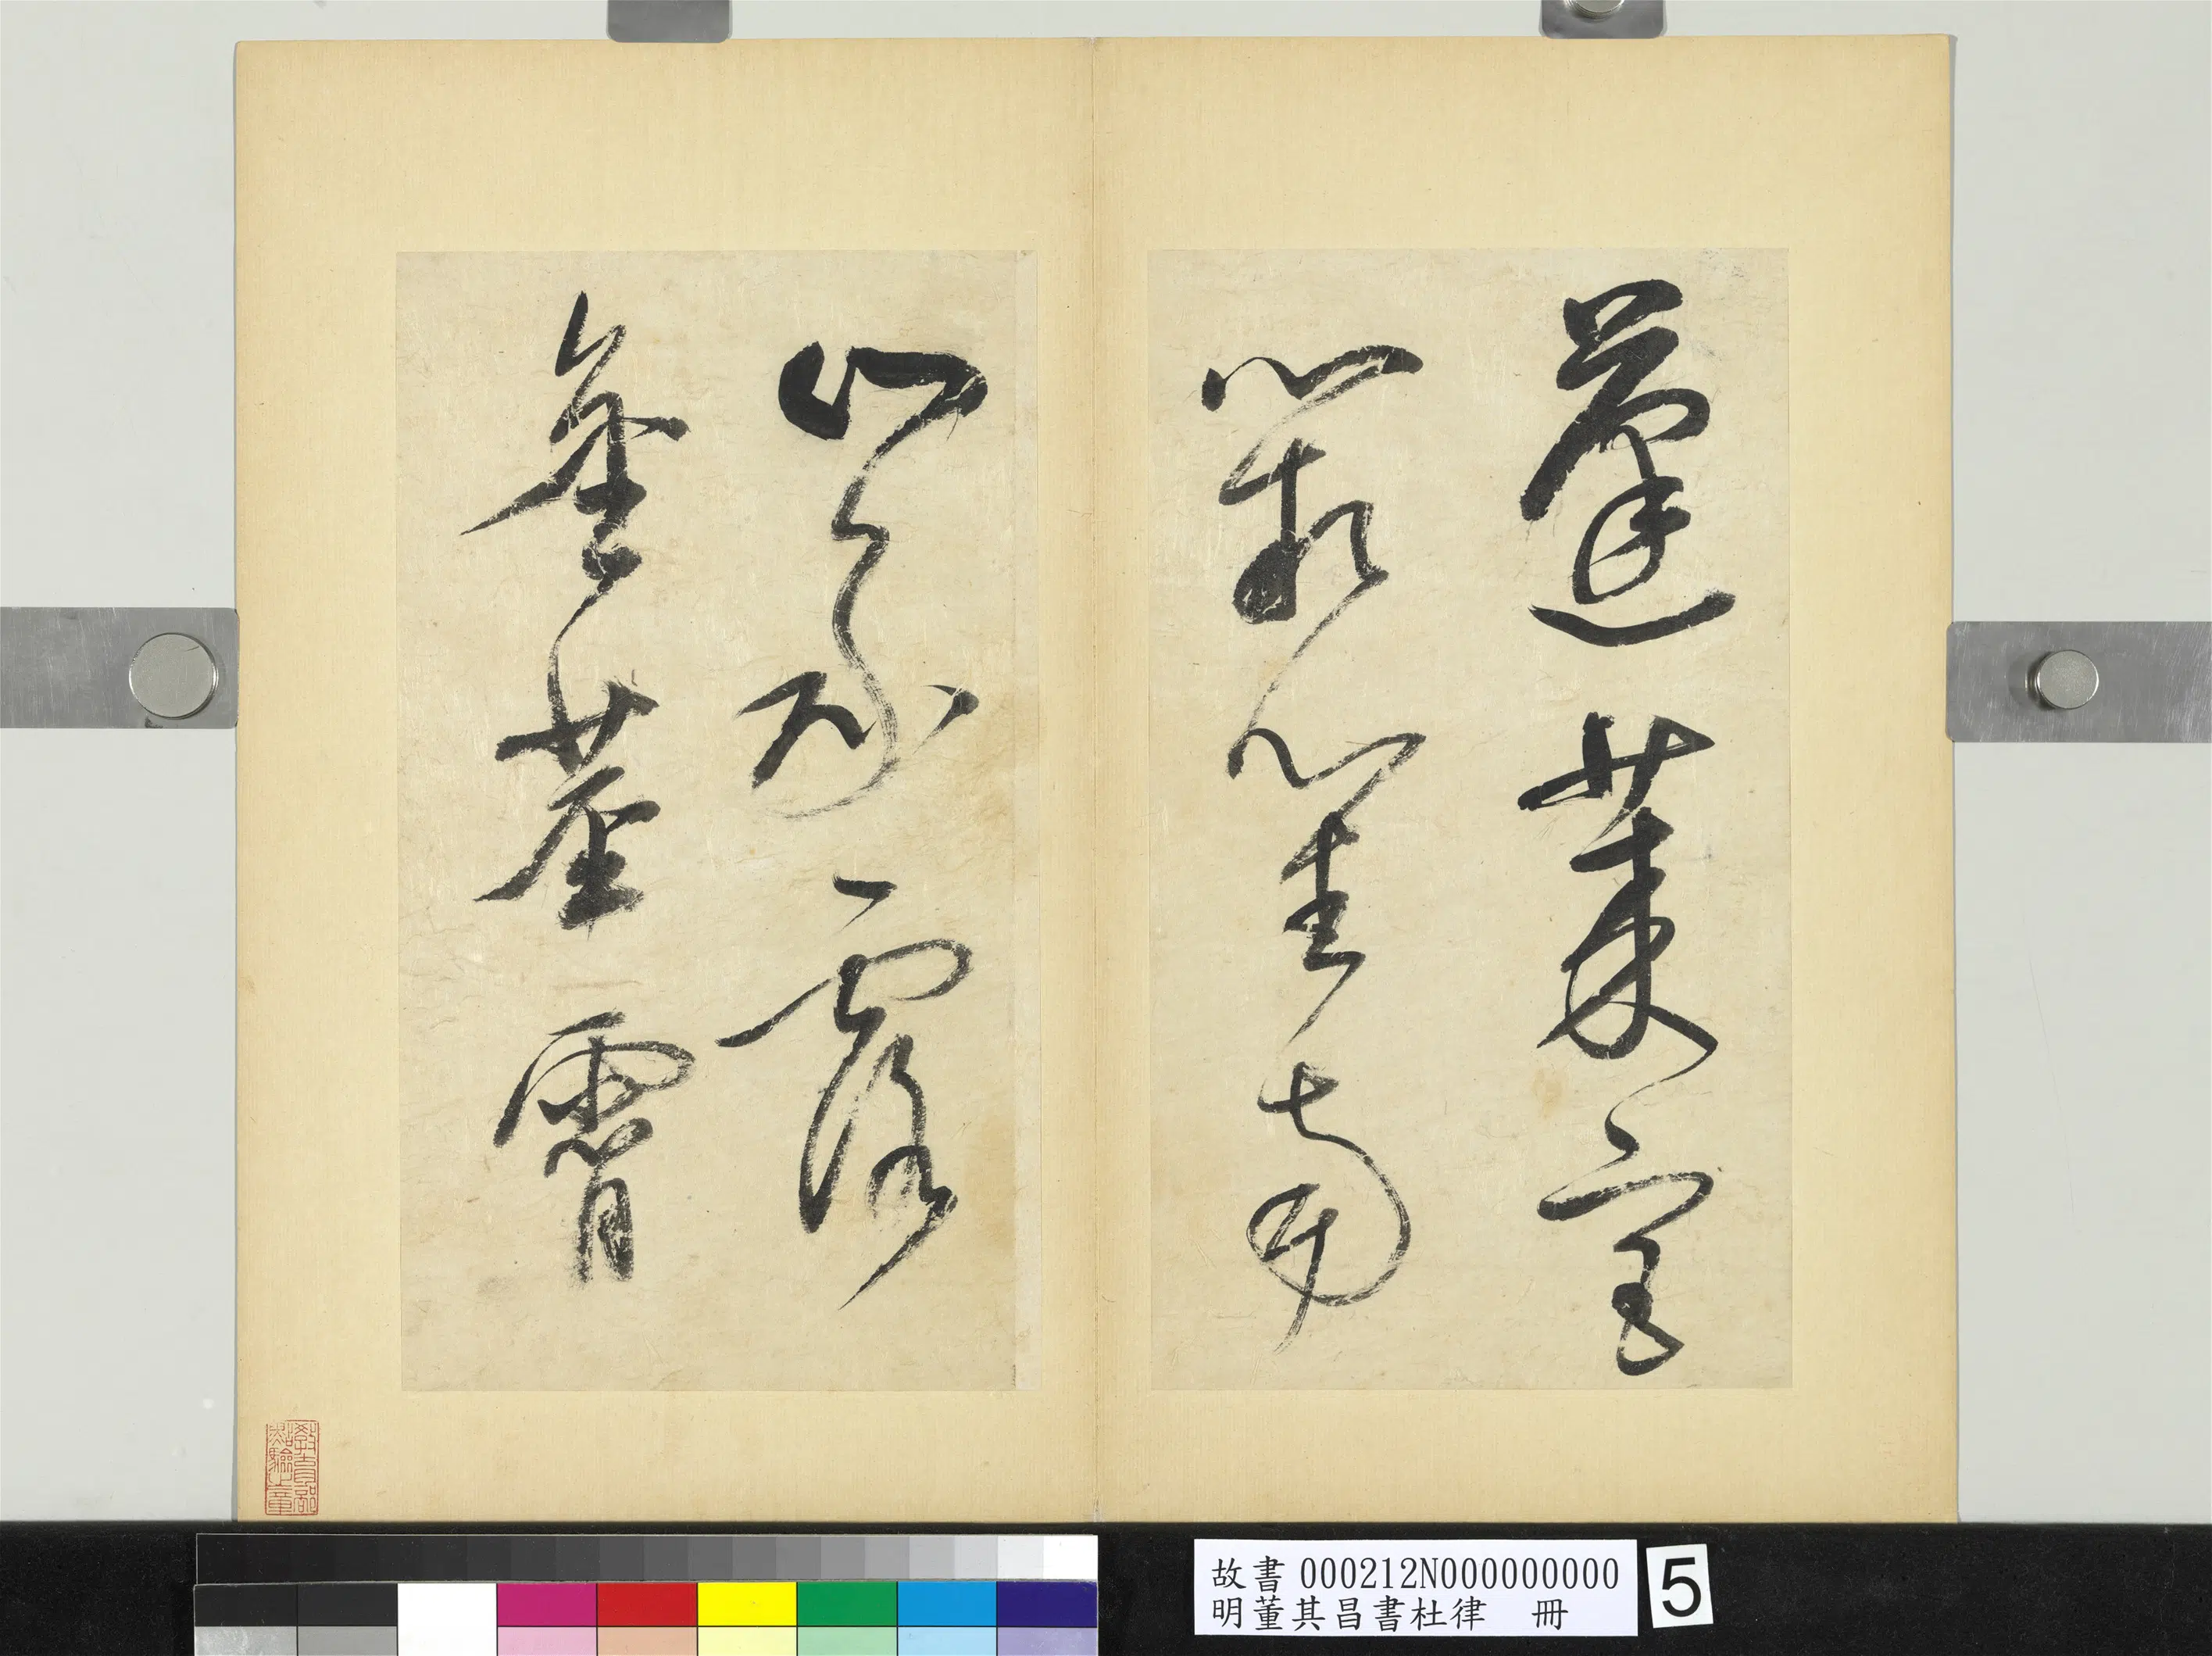 蓬萊宮
闕對南
山承露
金莖霄
教育部
點驗之章
故書 000212N000000000
明董其昌書杜律 冊
5